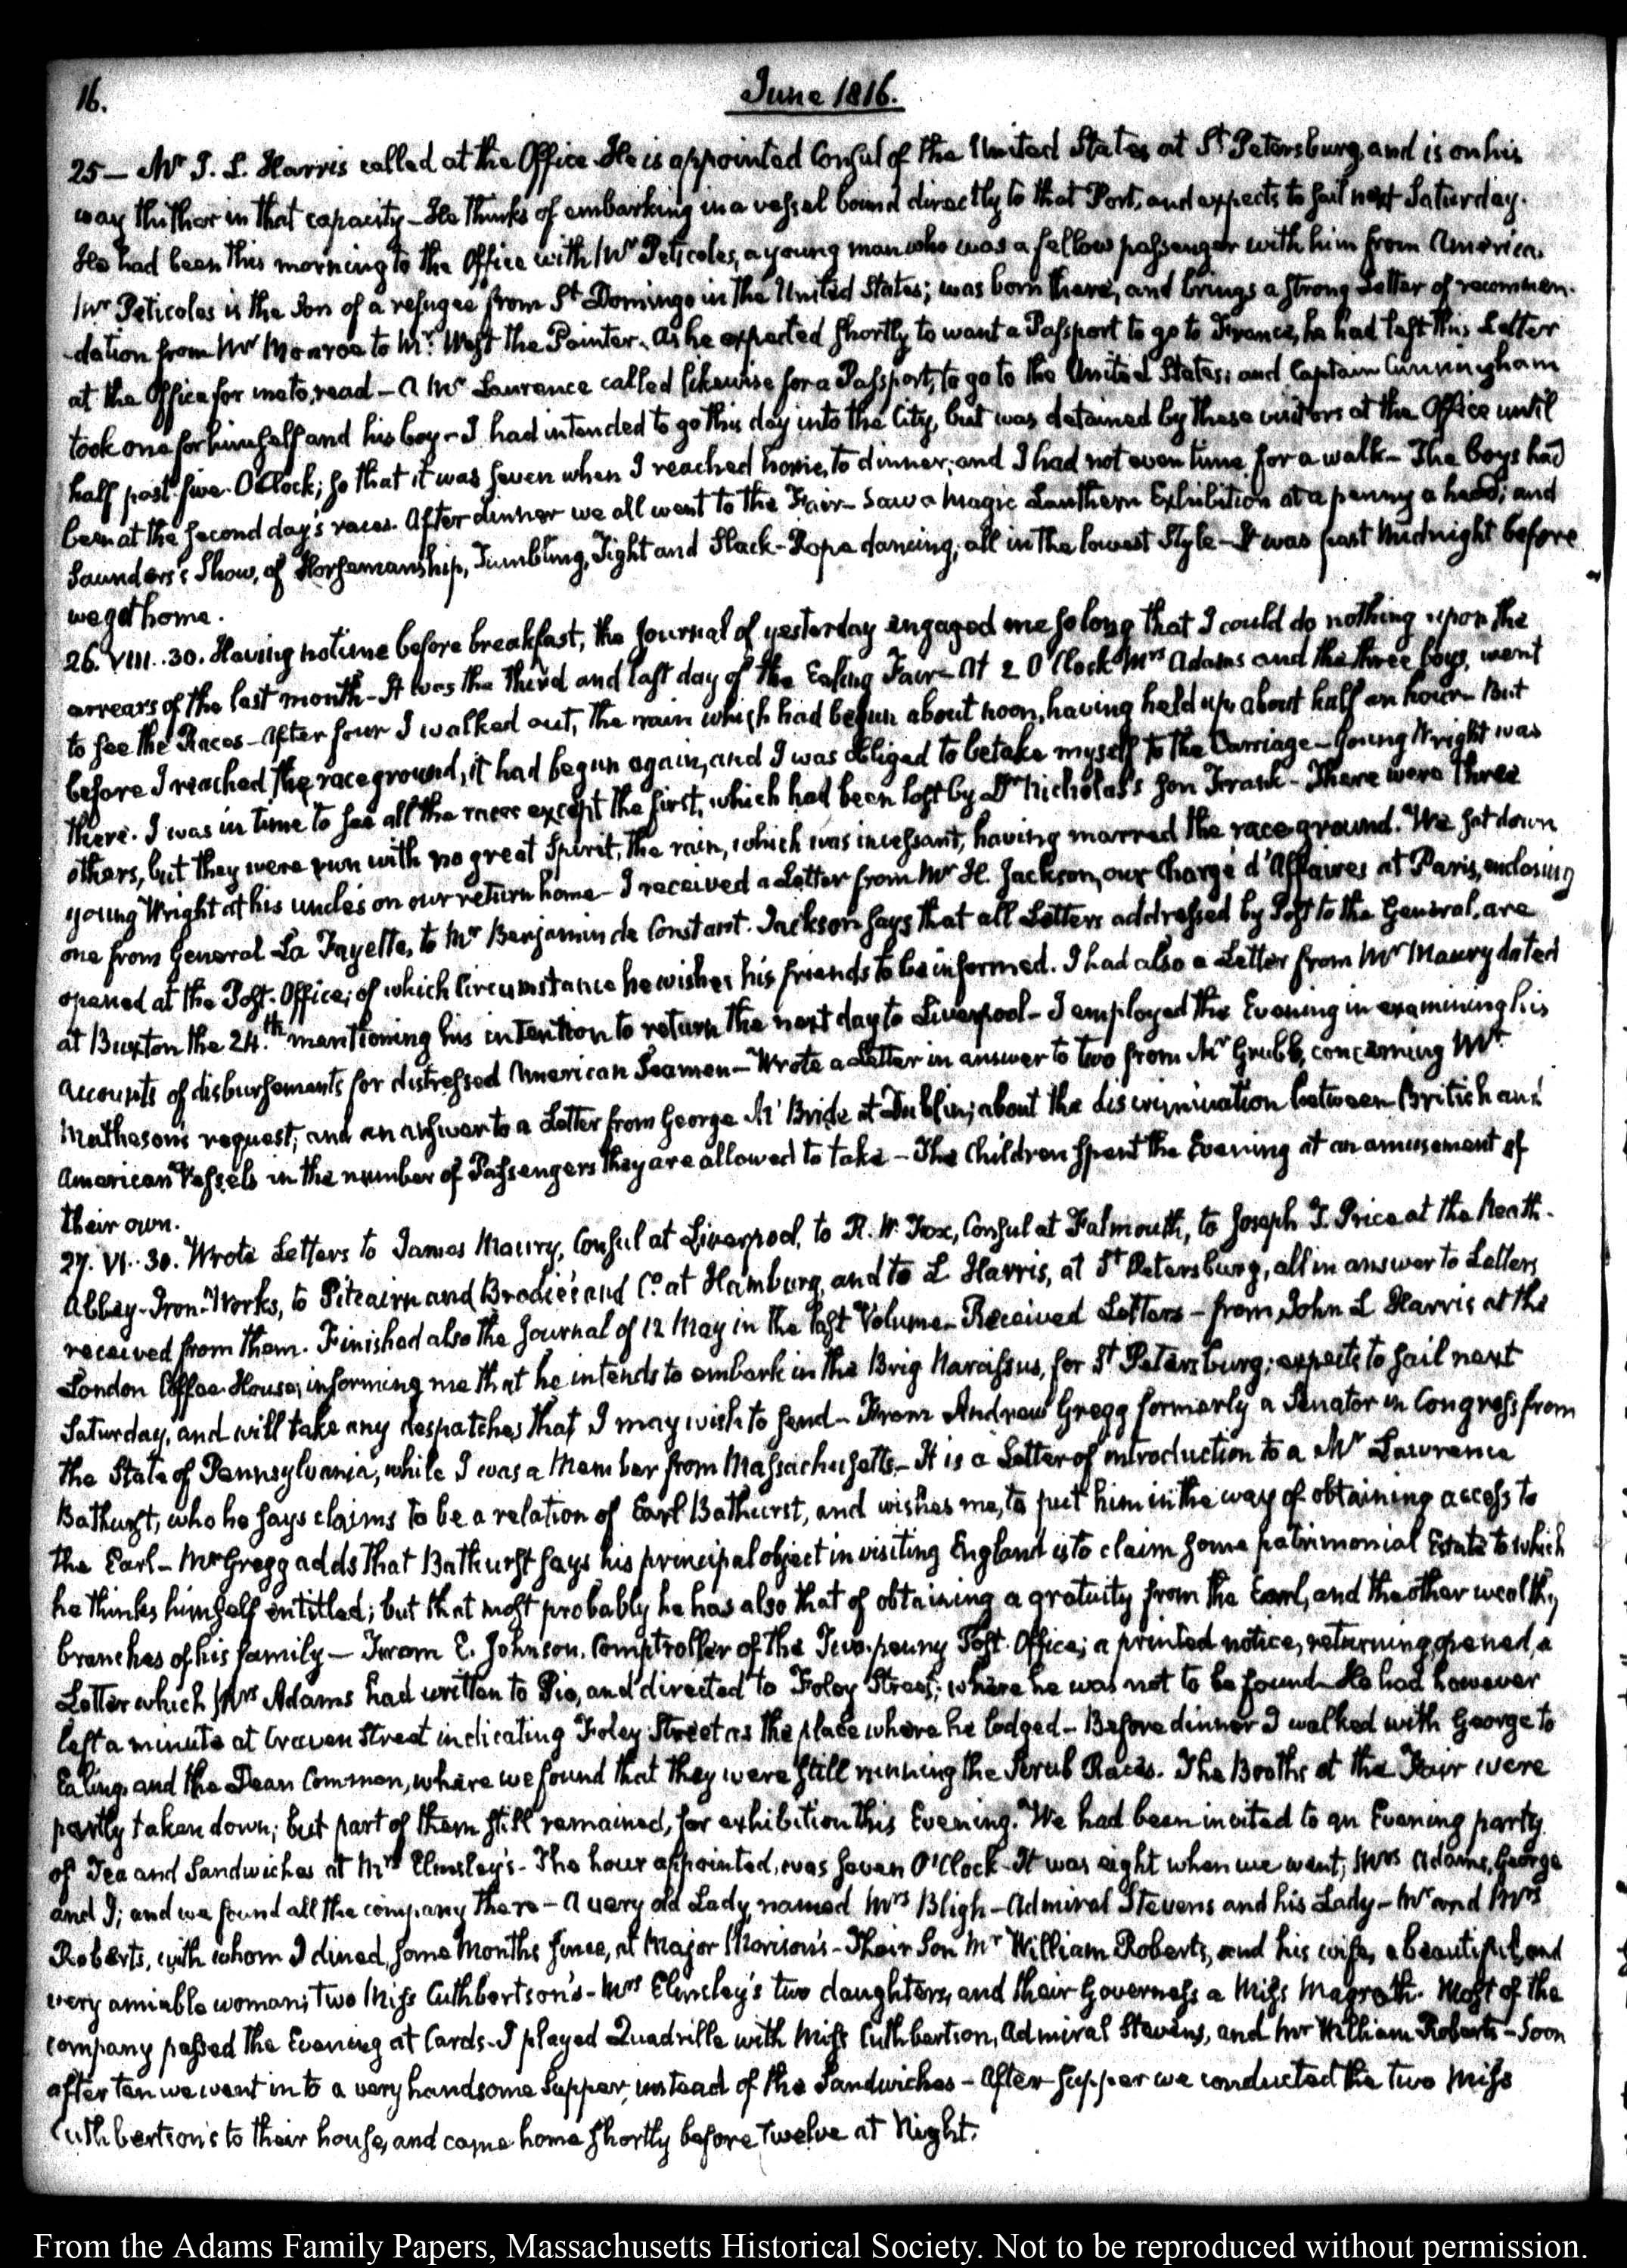 16.
June 1816.
25 — Mr J. L. Harris called at the Office. He is appointed Consul of the United States at St Petersburg, and is on his
way thither in that capacity — He thinks of embarking in a vessel bound directly to that Port, and expects to sail next Saturday.
He had been this morning to the Office with Mr Peticoles, a young man who was a fellow passenger with him from America.
Mr Peticolas is the Son of a refugee from St Domingo in the United States; was born there, and brings a strong Letter of recommen-
-dation from Mr Monroe to Mr West the Painter. As he expected shortly to want a Passport to go to France, he had left this Letter
at the Office for me to read — A Mr Laurence called likewise for a Passport, to go to the United States; and Captain Cunningham
took one for himself and his boy — I had intended to go this day into the City, but was detained by these visitors at the Office until
half past five O'Clock; so that it was seven when I reached home, to dinner; and I had not even time for a walk — The boys had
been at the second day's races. After dinner we all went to the Fair — Saw a Magic Lanthern Exhibition at a penny a head; and
Saunders's Show, of Horsemanship, Tumbling, Tight and Slack-Rope dancing; all in the lowest Style — It was past Midnight before
we got home.
26. VIII..30. Having no time before breakfast, the Journal of yesterday engaged me so long that I could do nothing upon the
arrears of the last month — It was the third and last day of the Ealing Fair — At 2 O'Clock Mrs Adams and the three boys, went
to see the Races — After four I walked out, the rain which had begun about noon, having held up about half an hour — But
before I reached the race ground, it had begun again, and I was obliged to betake myself to the Carriage — Young Wright was
there. I was in time to see all the races except the first, which had been lost by Dr Nicholas's son Frank — There were three
others, but they were run with no great Spirit, the rain, which was incessant, having marred the race ground. We set down
young Wright at his uncle's on our return home — I received a Letter from Mr H. Jackson, our Chargé d'Affaires at Paris, enclosing
one from General La Fayette, to Mr Benjamin de Constant. Jackson says that all Letters addressed by Post to the General, are
opened at the Post-Office; of which Circumstance he wishes his friends to be informed. I had also a Letter from Mr Maury dated
at Buxton the 24.th mentioning his intention to return the next day to Liverpool — I employed the Evening in examining his
accounts of disbursements for distressed American Seamen — Wrote a Letter in answer to two from Mr Grubb, concerning Mr
Matheson's request; and an answer to a Letter from George Mc Bride at Dublin; about the discrimination between British and
American Vessels in the number of Passengers they are allowed to take — The Children spent the Evening at an amusement of
their own.
27. VI..30. Wrote Letters to James Maury, Consul at Liverpool, to R. W. Fox, Consul at Falmouth, to Joseph T. Price at the Neath-
Abbey-Iron-Works, to Pitcairn and Brodie's and Co. at Hamburg, and to L. Harris, at St Petersburg, all in answer to Letters
received from them. Finished also the Journal of 12 May in the last Volume — Received Letters — from John L Harris at the
London Coffee-House, informing me that he intends to embark in the Brig Narcissus, for St Petersburg; expects to sail next
Saturday, and will take any despatches that I may wish to send — From Andrew Gregg formerly a Senator in Congress from
the State of Pennsylvania, while I was a Member from Massachusetts — It is a Letter of introduction to a Mr Lawrence
Bathurst, who he says claims to be a relation of Earl Bathurst, and wishes me, to put him in the way of obtaining access to
the Earl — Mr Gregg adds that Bathurst says his principal object in visiting England is to claim some patrimonial Estate to which
he thinks himself entitled; but that most probably he has also that of obtaining a gratuity from the Earl, and the other wealthy
branches of his family — From E. Johnson. Comptroller of the Two-penny Post-Office; a printed notice, returning, opened, a
Letter which Mrs Adams had written to Pio, and directed to Foley Street; where he was not to be found — He had however
left a minute at Craven Street indicating Foley Street as the place where he lodged — Before dinner I walked with George to
Ealing, and the Dean Common, where we found that they were still running the Scrub Races. The Booths at the Fair were
partly taken down; but part of them still remained, for exhibition this Evening. We had been invited to an Evening party
of Tea and Sandwiches at Mrs Elmsley's — The hour appointed, was seven O'Clock — It was eight when we went; Mrs Adams, George
and I; and we found all the company there — A very old Lady, named Mrs Bligh — Admiral Stevens and his Lady — Mr and Mrs
Roberts, with whom I dined, some Months since, at Major Morison's — Their Son Mr William Roberts, and his wife, a beautiful, and
very amiable woman; two Miss Cuthbertson's — Mrs Elmsley's two daughters, and their Governess a Miss Magrath. Most of the
company passed the Evening at Cards — I played Quadrille with Miss Cuthbertson, Admiral Stevens, and Mr William Roberts — Soon
after ten we went in to a very handsome Supper, instead of the Sandwiches — After supper we conducted the two Miss
Cuthbertson's to their house, and came home shortly before twelve at Night.
From the Adams Family Papers, Massachusetts Historical Society. Not to be reproduced without permission.